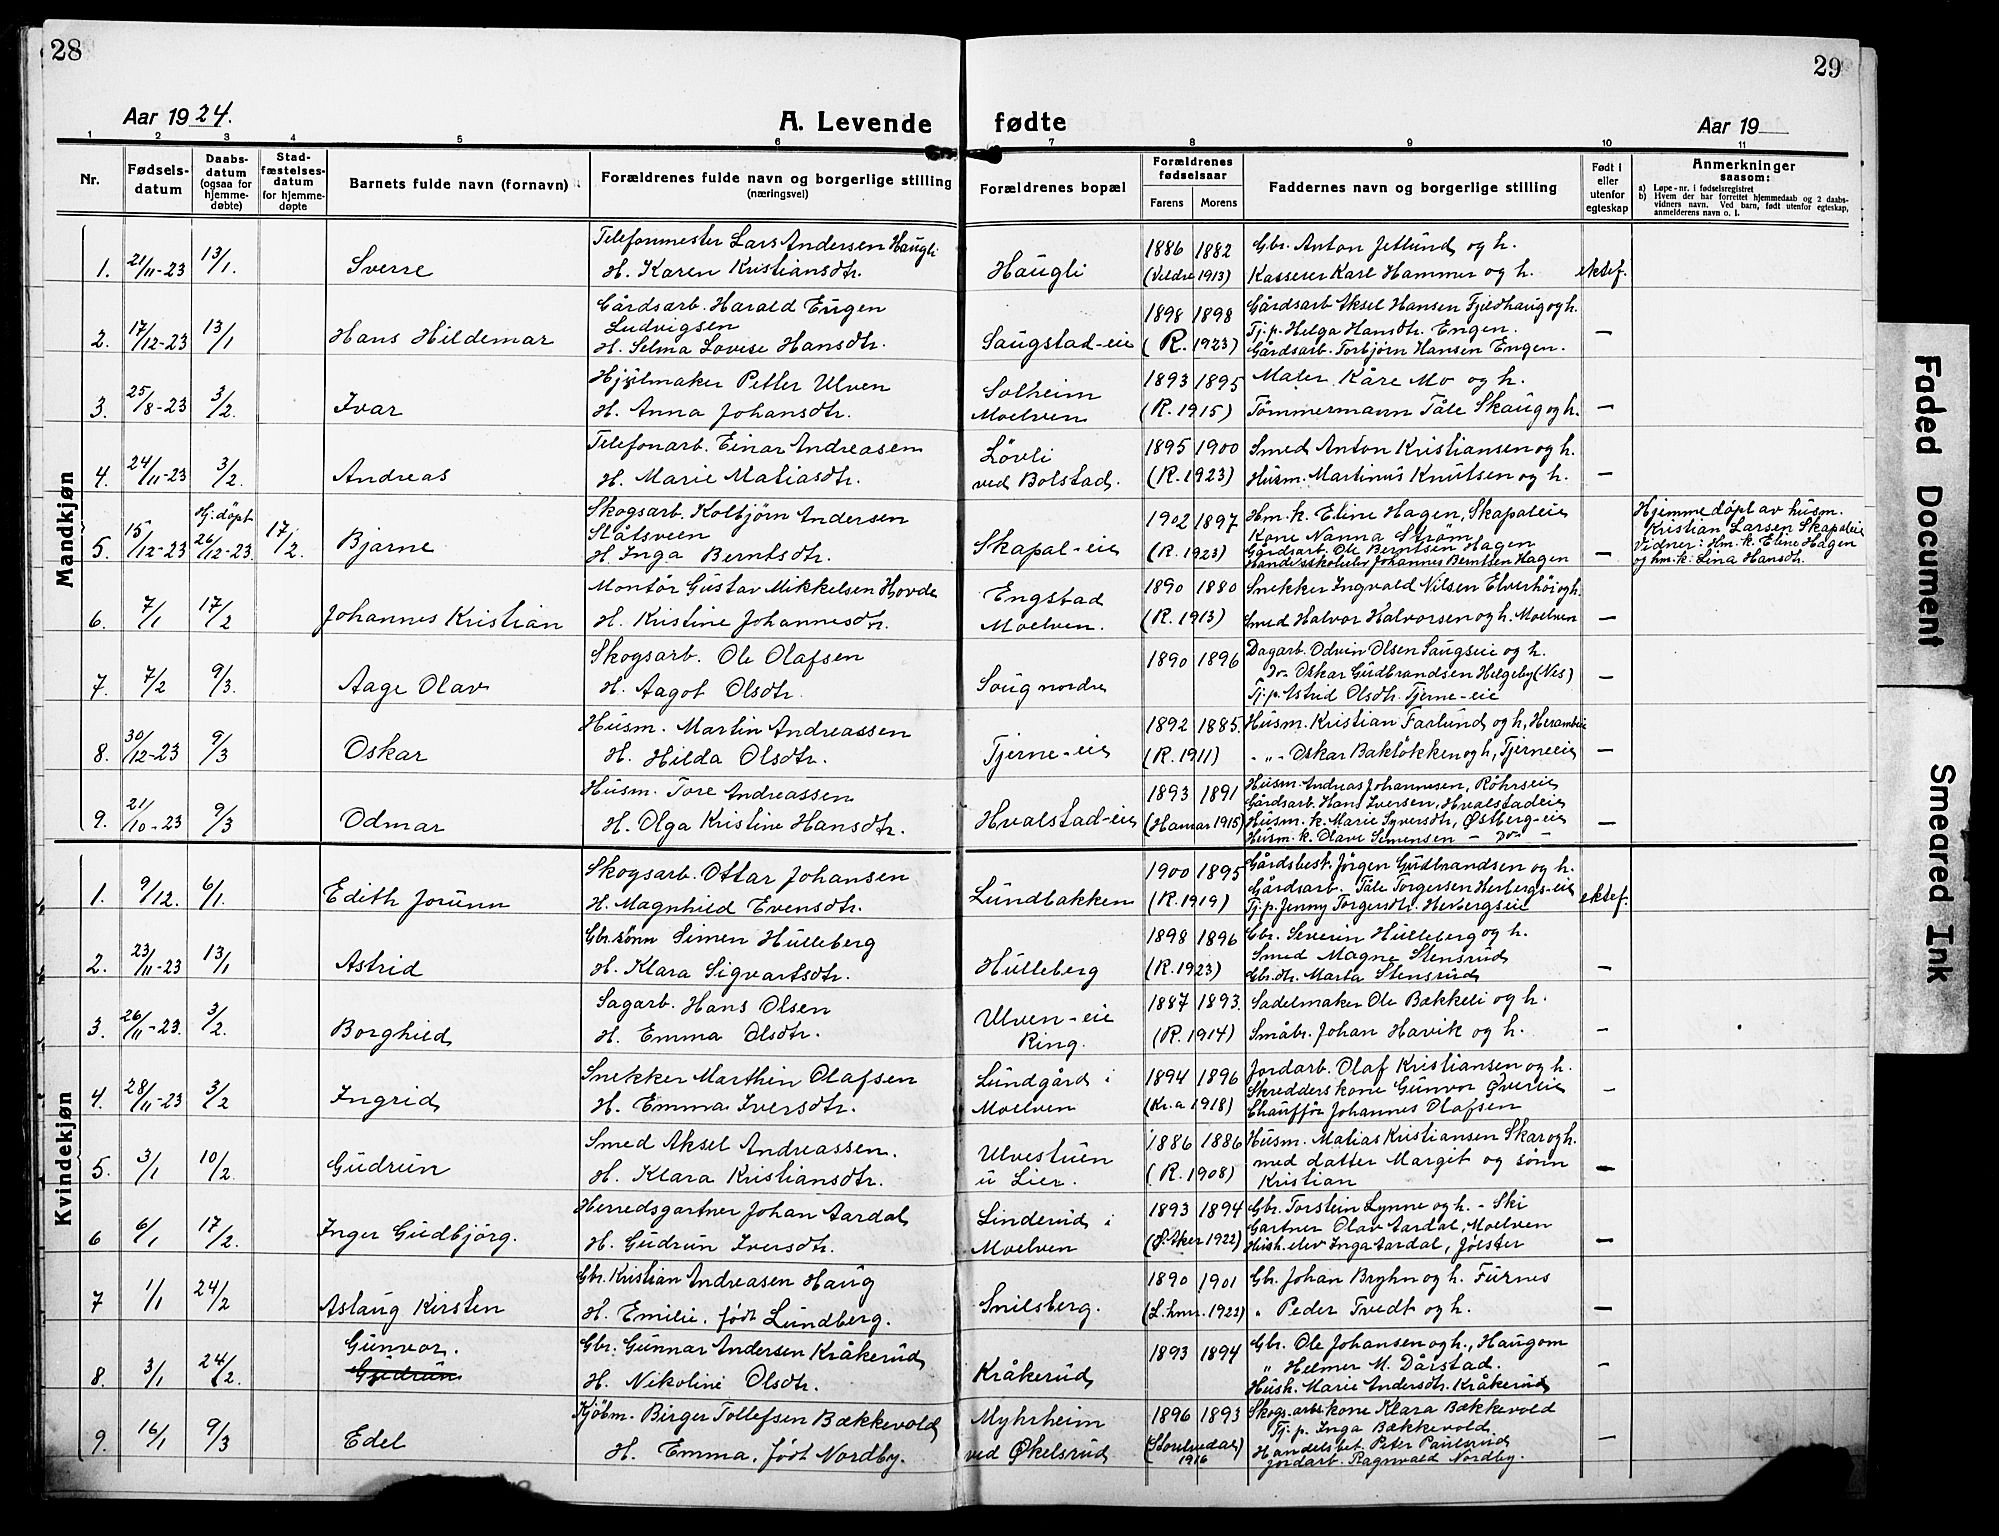 28
29
Aar 1924.
A. Levende
fødte
Aar 19
1 2 3 4 5 6 7 8 9 10 11
Nr.
Fødsels-
datum
Daabs-
datum
(ogsaa for
hjemme-
døbte)
Stad-
fæstelses-
datum
for hjemme-
døpte
Barnets fulde navn (fornavn)
Forældrenes fulde navn og borgerlige stilling
(næringsvei)
Forældrenes bopæl
Forældrenes
fødselsaar
Farens Morens
Faddernes navn og borgerlige stilling
Født i
eller
utenfor
egteskap
Anmerkninger
saasom:
a) Løpe-nr. i fødselsregistret
b) Hvem der har forrettet hjemmedaab og 2 daabs-
vidners navn. Ved barn, født utenfor egteskap,
anmelderens navn o. l.
Mandkjøn
1. 21/11-23 13/1. Sverre
Telefonmester Lars Andersen Haugli
H. Karen Kristiansdtr.
Haugli
1886 1882
(Veldre 1913)
Gbr. Anton Jetlund og h.
Kasserer Karl Hammer og h.
ektef.
2. 17/12-23 13/1 Hans Hildemar
Gårdsarb. Harald Eugen
Ludvigsen
H. Selma Lovise Hansdtr.
Saugstad-eie
1898 1898
(R. 1923)
Gårdsarb Aksel Hansen Fjeldhaug og h.
Tj.p. Helga Hansdtr. Engen.
Gårdsarb. Torbjørn Hansen Engen.
—
3. 25/8-23 3/2. Ivar
Hjulmaker Petter Ulven
H. Anna Johansdtr.
Solheim
Moelven
1893 1895
(R. 1915)
Maler Kåre Mo og h.
Tømmermann Tåle Skaug og h.
—
4. 24/11-23 3/2. Andreas
Telefonarb. Einar Andreasen
H. Marie Matiasdtr.
Løvli
ved Bolstad.
1895 1900
(R. 1923)
Smed Anton Kristiansen og h.
Husm. Martinus Knutsen og h.
—
5. 15/12-23 Hj. døpt 26/12-23. 17/2. Bjarne
Skogsarb. Kolbjørn Andersen
Slåtsveen
H. Inga Berntsdtr.
Skapal-eie
1902 1897
(R. 1923)
Hm. k. Eline Hagen, Skapaleie
Kone Nanna Strøm
Gårdsarb. Ole Berntsen Hagen
Handelsskoleelev Johannes Berntsen Hagen
—
Hjemmedøpt av husm.
Kristian Larsen Skapaleie
Vidner: Hm. k. Eline Hagen
og hm. k. Lina Hansdtr.
6. 7/1 17/2 Johannes Kristian
Montør Gustav Mikkelsen Hovde
H. Kristine Johannesdtr.
Engstad
Moelven.
1890 1880
(R. 1913)
Snekker Ingvald Nilsen Elverhøi og h.
Smed Halvor Halvorsen og h. Moelven
—
7. 7/2 9/3. Aage Olav
Skogsarb. Ole Olafsen
H. Aagot Olsdtr.
Saug nordre
1890 1896
Dagarb. Odvin Olsen Saugseie og h.
Do Oskar Gudbrandsen Helgeby (Nes)
Tj.p. Astrid Olsdtr. Tjerne-eie
—
8. 30/12-23 9/3 Oskar
Husm. Martin Andreassen
H. Hilda Olsdtr.
Tjerne-eie
1892 1885.
(R. 1911)
Husm. Kristian Farlund og h, Herambeie
" " Oskar Bakløkken og h, Tjerneeie
—
9. 21/10-23 9/3 Odmar
Husm. Tore Andreassen
H. Olga Kristine Hansdtr.
Hvalstad-eie
1893 1891
(Hamar 1915)
Husm. Andreas Johannesen, Røhrseie
Gårdsarb. Hans Iversen, Hvalstadeie
Husm. k. Marie Syversdtr, Østberg-eie
Husm. k. Olave Simensen - Do -
—
Kvindekjøn
1. 9/12. 6/1. Edith Jorunn
Skogsarb. Ottar Johansen
H. Magnhild Evensdtr.
Lundbakken
1900 1895
(R. 1919)
Gårdsbest. Jørgen Gudbrandsen og h.
Gårdsarb. Tåle Torgersen Herbergs-eie
Tj.p. Jenny Torgersdtr. Herbergseie
ektef.
2. 23/11-23 13/1 Astrid
Gbr. sønn Simen Hulleberg
H. Klara Sigvartsdtr.
Hulleberg
1898 1896
(R. 1923)
Gbr. Severin Hulleberg og h.
Smed Magne Stensrud
Gbr. dtr. Marta Stensrud
—
3. 26/11-23. 3/2. Borghild
Sagarb. Hans Olsen
H. Emma Olsdtr.
Ulven-eie
Ring.
1887 1893.
(R. 1914)
Sadelmaker Ole Bækkeli og h.
Småbr. Johan Havik og h.
—
4. 28/11-23 3/2 Ingrid
Snekker Marthin Olafsen
H. Emma Iversdtr.
Lundgård i
Moelven
1894 1896
(Kr.a 1918)
Jordarb. Olaf Kristiansen og h.
Skredderskone Gunvor Øvereie
Chauffør Johannes Olafsen
—
5. 3/1 10/2. Gudrun
Smed Aksel Andreassen.
H. Klara Kristiansdtr.
Ulvestuen
u Lier.
1886 1886
(R. 1908)
Husm. Matias Kristiansen Skar og h.
med datter Margit og sønn
Kristian
—
6 6/1 17/2. Inger Gudbjørg.
Herredsgartner Johan Aardal
H. Gudrun Iversdtr.
Linderud i
Moelven
1893 1894
(Ø. Aker 1922)
Gbr. Torstein Lynne og h. - Ski
Gartner Olav Aardal, Moelven
Hush. elev Inga Aardal, Jølster
—
7 1/1 24/2 Aslaug Kirsten
Gbr. Kristian Andreasen Haug
H. Emilie, født Lundberg.
Snilsberg.
1890 1901
(L.hmr. 1922)
Gbr. Johan Bryhn og h. Furnes
" Peder Tvedt og h.
—
8. 3/1 24/2. Gunvor.
Gudrun
Gbr. Gunnar Andersen Kråkerud
H. Nikoline Olsdtr.
Kråkerud
1893 1894
Gbr. Ole Johansen og h., Haugom
" Helmer M. Dårstad.
Hush. Marie Andersdtr. Kråkerud
—
9. 16/1 9/3 Edel
Kjøbm. Birger Tollefsen Bækkevold
H. Emma, født Nordby.
Myhrheim
ved Økelsrud
1896 1893
1916
Skogs-arbs kone Klara Bækkevold
Tj.p. Inga Bækkevold.
Handelsbet. Peter Paulsrud
Jordarb. Ragnvald Nordby.
—
Faded Document
Smeared Ink